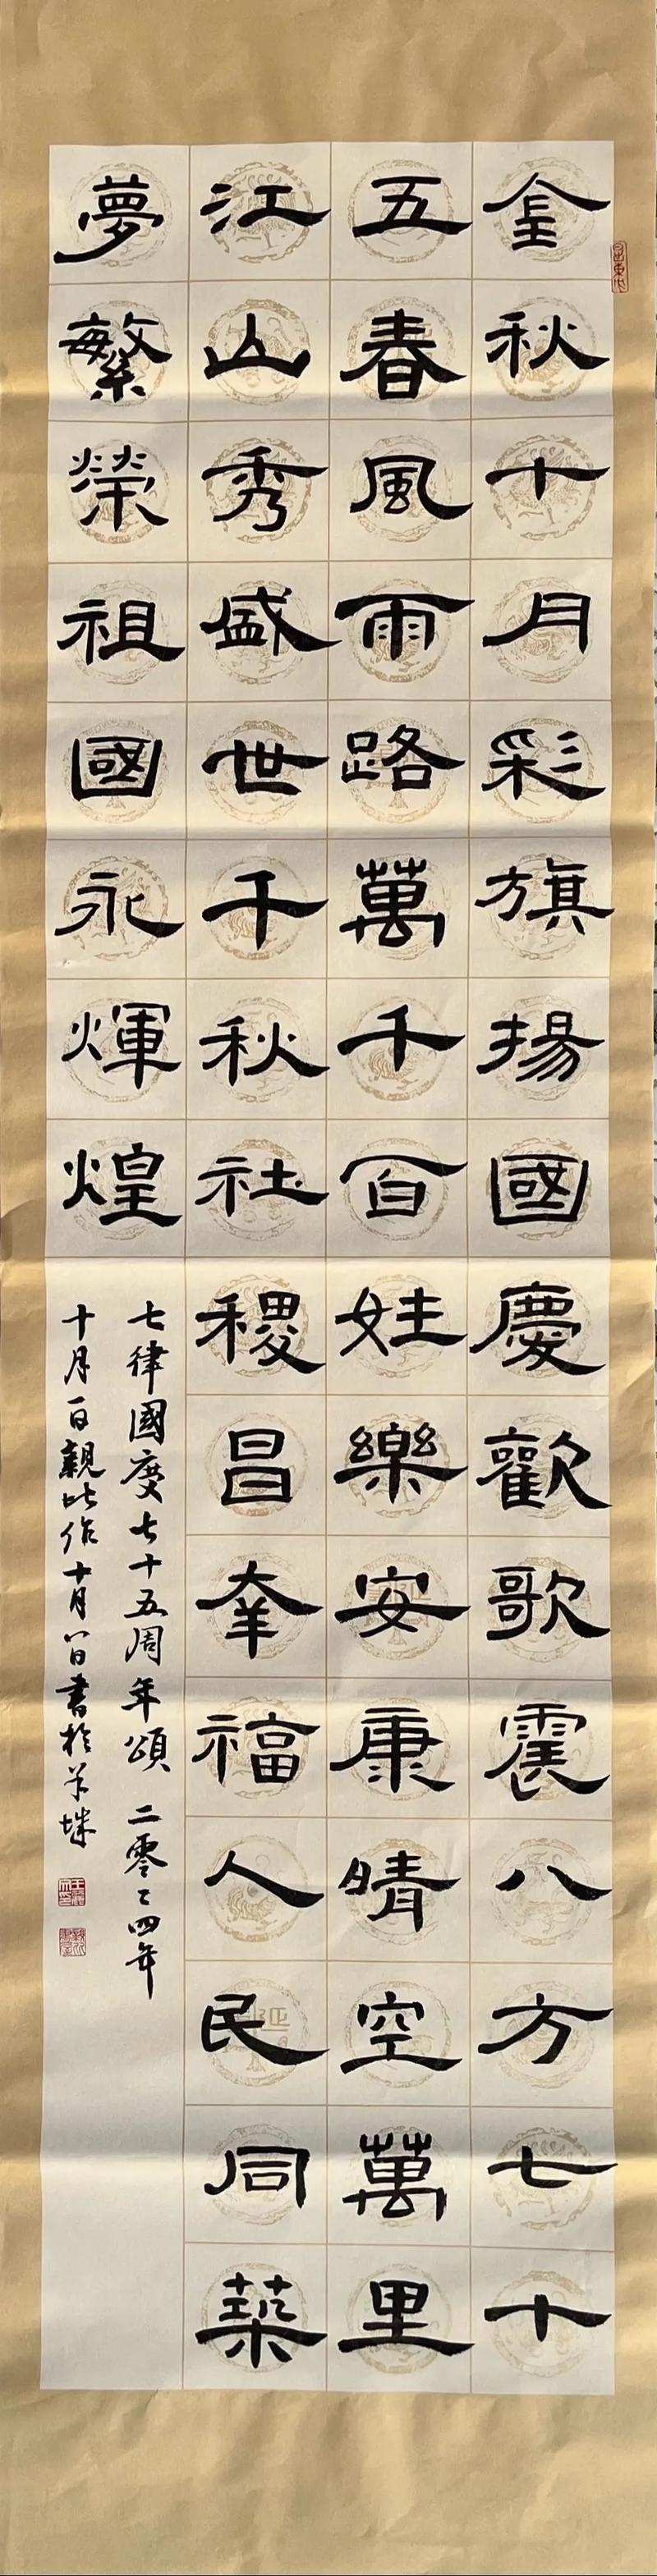 金秋十月彩旗揚國慶歡歌震八方七十
五春風雨路萬千百姓樂安康晴空萬里
江山秀盛世千秋社稷昌幸福人民同築
夢繁榮祖國永輝煌
七律國慶七十五周年頌 二零二四年
十月一日親此作十月八日書於羊城